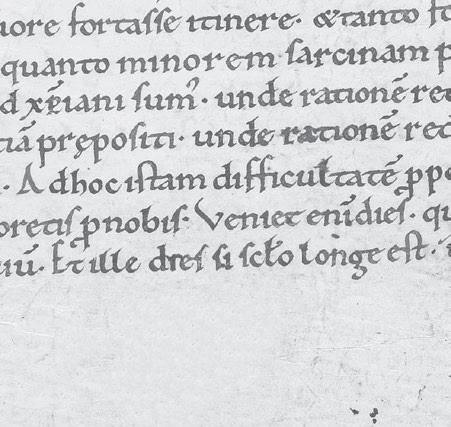 iore fortasse itinere. &tanto fa
quanto minorem sarcinam p
d xp̄iani sum᷒. unde rationē red
tiā prępositi. unde rationē red
. Adhoc istam difficultatē ꝓpo
oretis ꝓnobis. Veniet enī dies. qu
iū. Et ille dies si sc̄lo longe est.